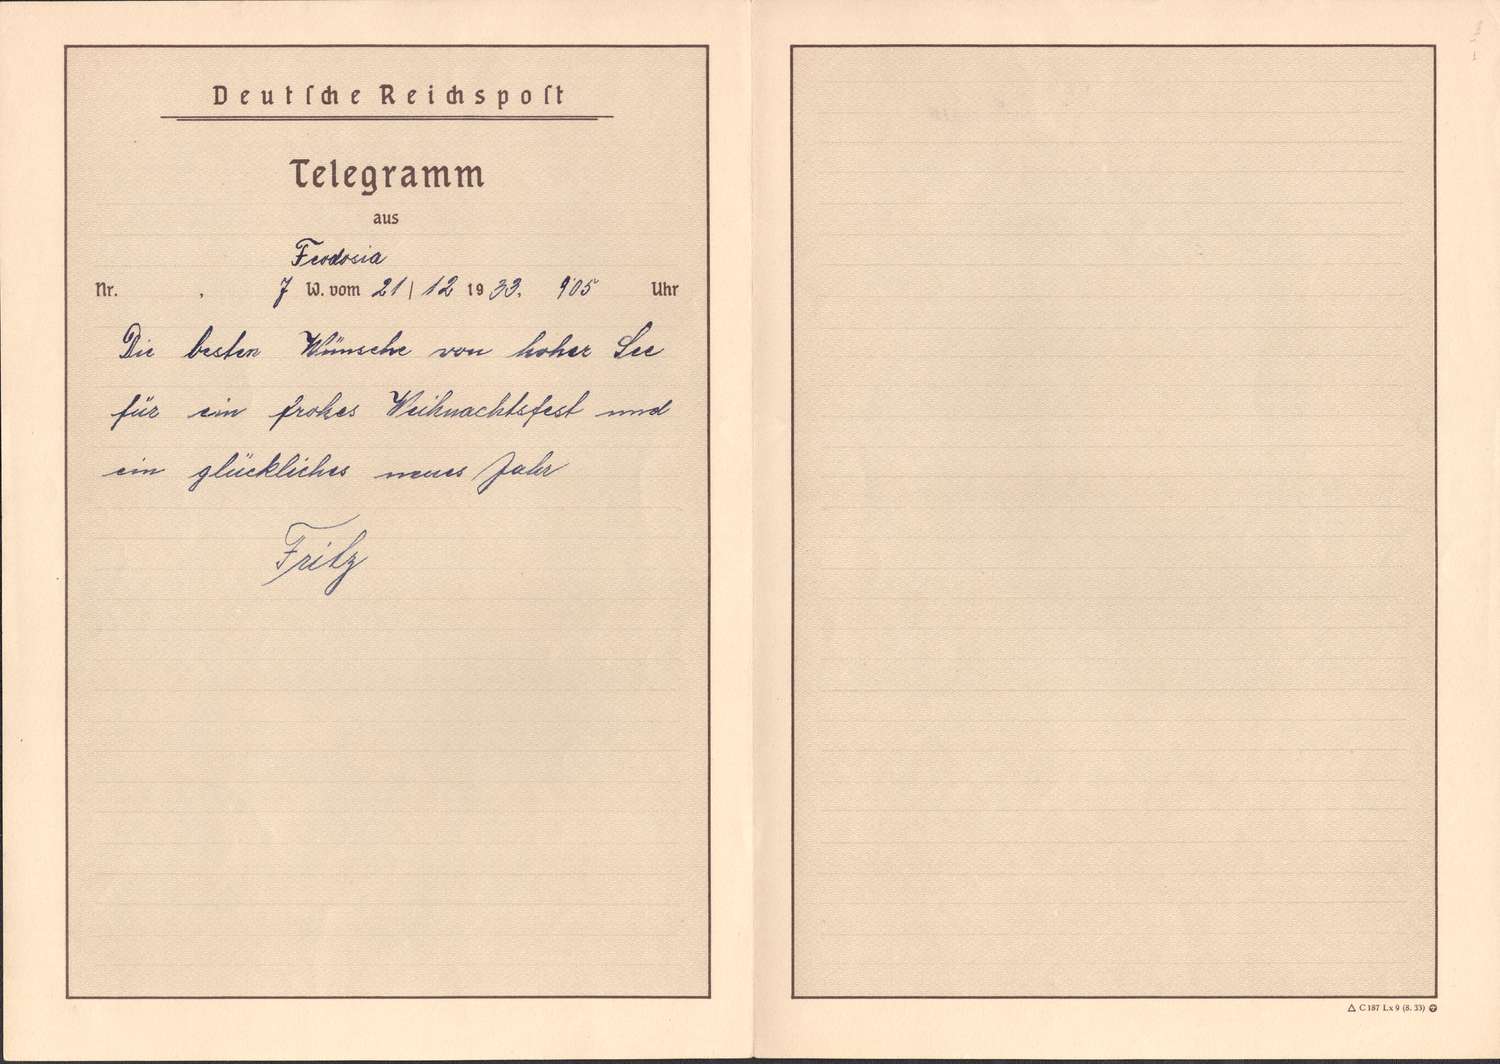 Deutsche Reichspost
Telegramm
aus
Feodosia
Nr. 7 W. vom 21/12 1933. 905 Uhr
Die besten Wünsche von hoher See
für ein frohes Weihnachtsfest und
ein glückliches neues Jahr
Fritz
C 187 Lx 9 (8. 33)